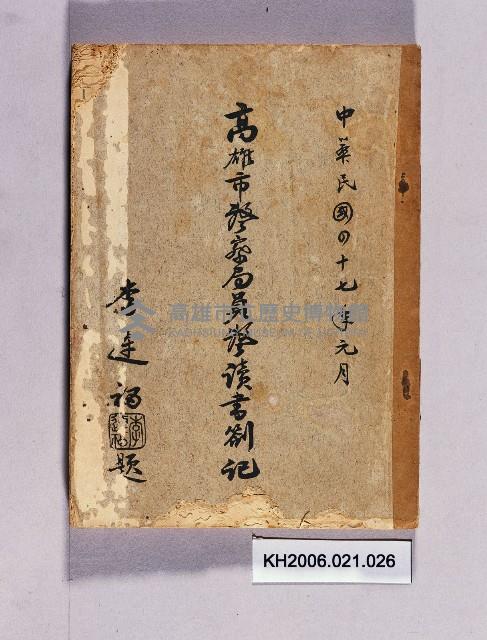 中華民國四十七年元月
高雄市警察局員警讀書劄記
李連福題
高雄市立歷史博物館
KAOHSIUNG MUSEUM OF HISTORY
KH2006.021.026